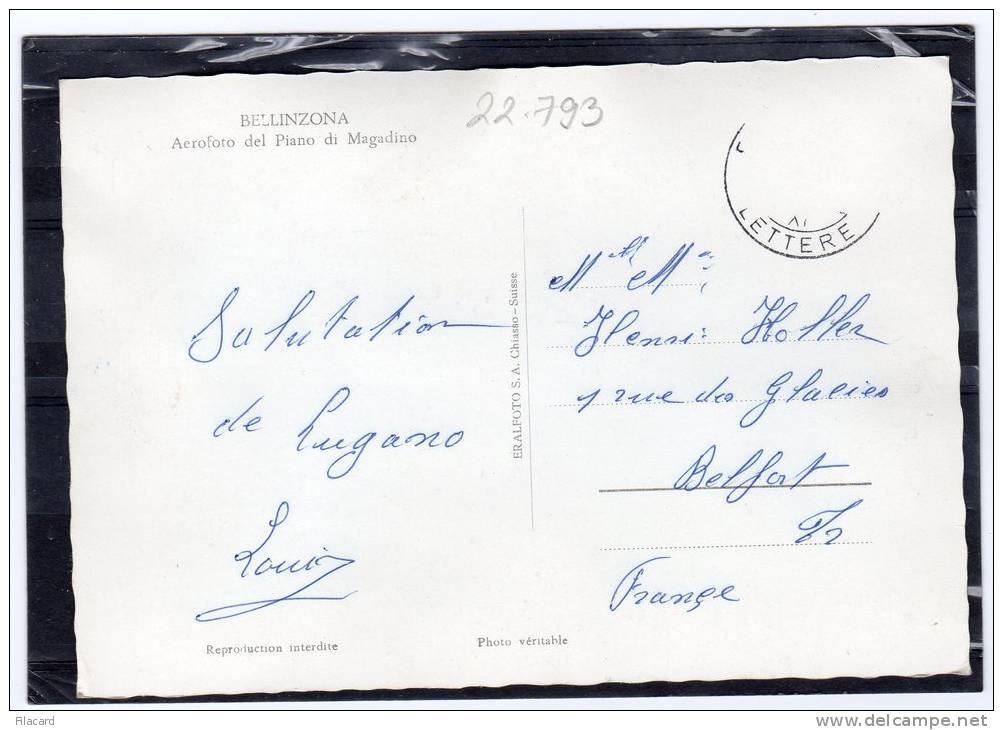 BELLINZONA
Aerofoto del Piano di Magadino
22.793
LETTERE
Salutation
de Lugano
Louis
ERALFOTO S. A. Chiasso - Suisse
Henri Holler
1 rue des Glacies
Belfort
France
Reproduction interdite
Photo véritable
filacard
www.delcampe.net